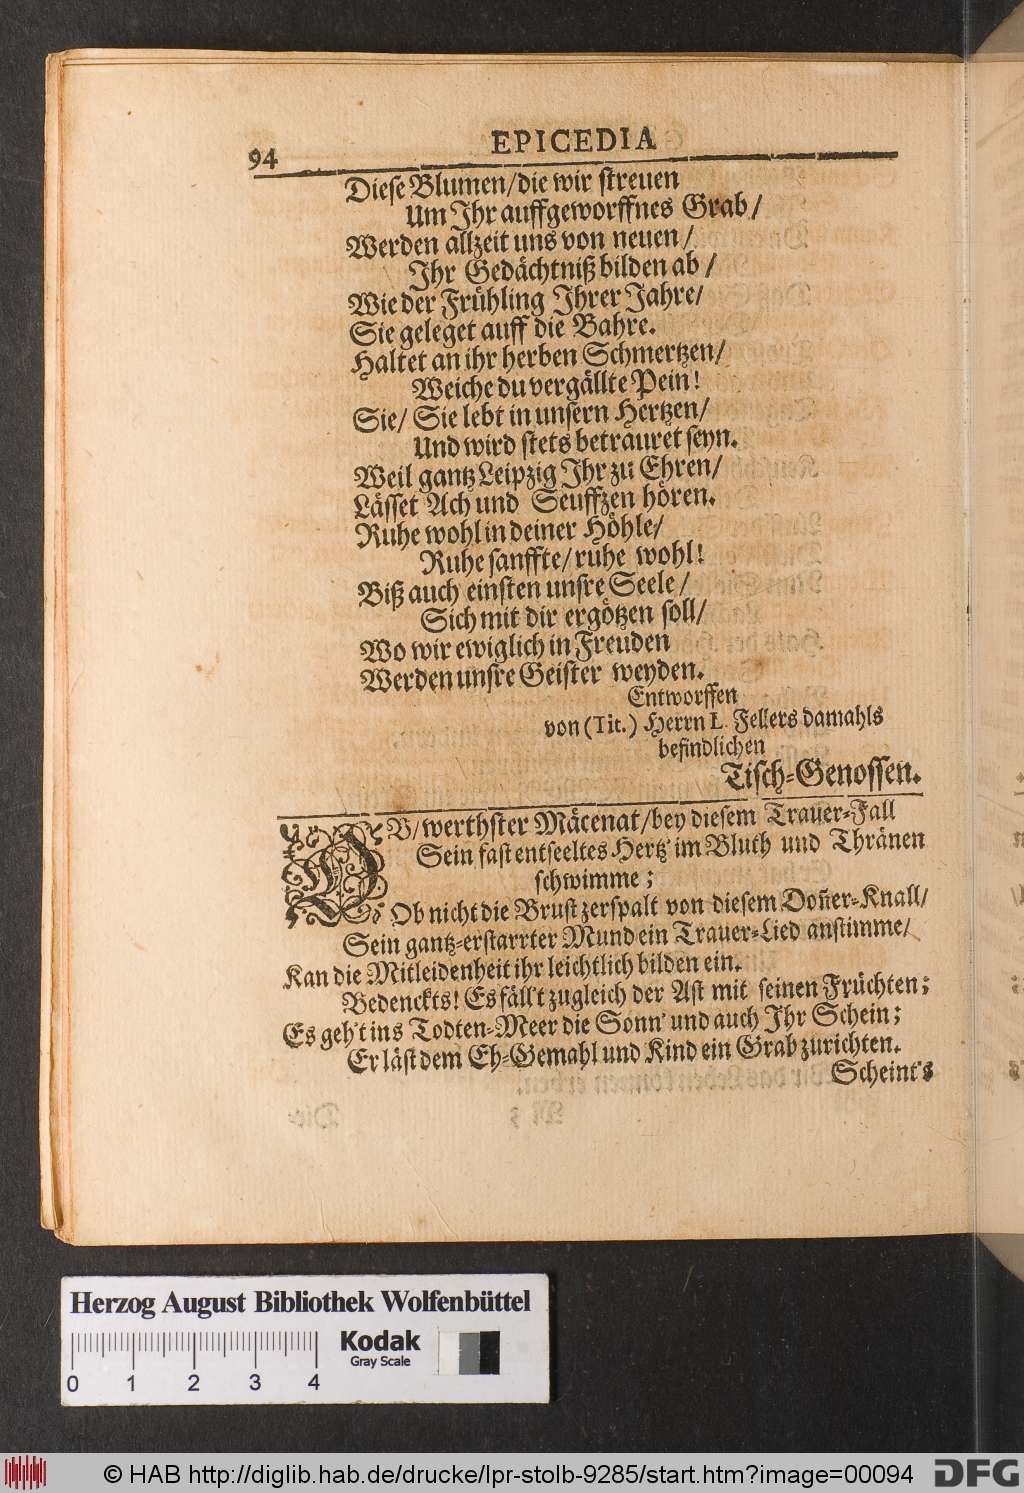 94
EPICEDIA
Diese Blumen/die wir streuen
Um Ihr auffgeworffnes Grab/
Werden allzeit uns von neuen/
Ihr Gedächtniß bilden ab/
Wie der Frühling Ihrer Jahre/
Sie geleget auff die Bahre.
Haltet an ihr herben Schmertzen/
Weiche du vergällte Pein!
Sie/ Sie lebt in unsern Hertzen/
Und wird stets betrauret seyn.
Weil gantz Leipzig Ihr zu Ehren/
Lässet Ach und Seuffzen hören.
Ruhe wohl in deiner Höhle/
Ruhe sanffte/ ruhe wohl!
Biß auch einsten unsre Seele/
Sich mit dir ergötzen soll/
Wo wir ewiglich in Freuden
Werden unsre Geister weyden.
Entworffen
von (Tit.) Herrn L. Fellers damahls
befindlichen
Tisch-Genossen.
OB/ werthster Mäcenat/bey diesem Trauer-Fall
Sein fast entseeltes Hertz' im Bluth und Thränen
schwimme;
Ob nicht die Brust zerspalt von diesem Don̄er-Knall/
Sein gantz-erstarrter Mund ein Trauer-Lied anstimme/
Kan die Mitleidenheit ihr leichtlich bilden ein.
Bedenckts! Es fäll't zugleich der Ast mit seinen Früchten;
Es geh't ins Todten-Meer die Sonn' und auch Ihr Schein;
Er läst dem Eh-Gemahl und Kind ein Grab zurichten.
Scheint's
Herzog August Bibliothek Wolfenbüttel
0 1 2 3 4
Kodak
Gray Scale
© HAB http://diglib.hab.de/drucke/lpr-stolb-9285/start.htm?image=00094
DFG